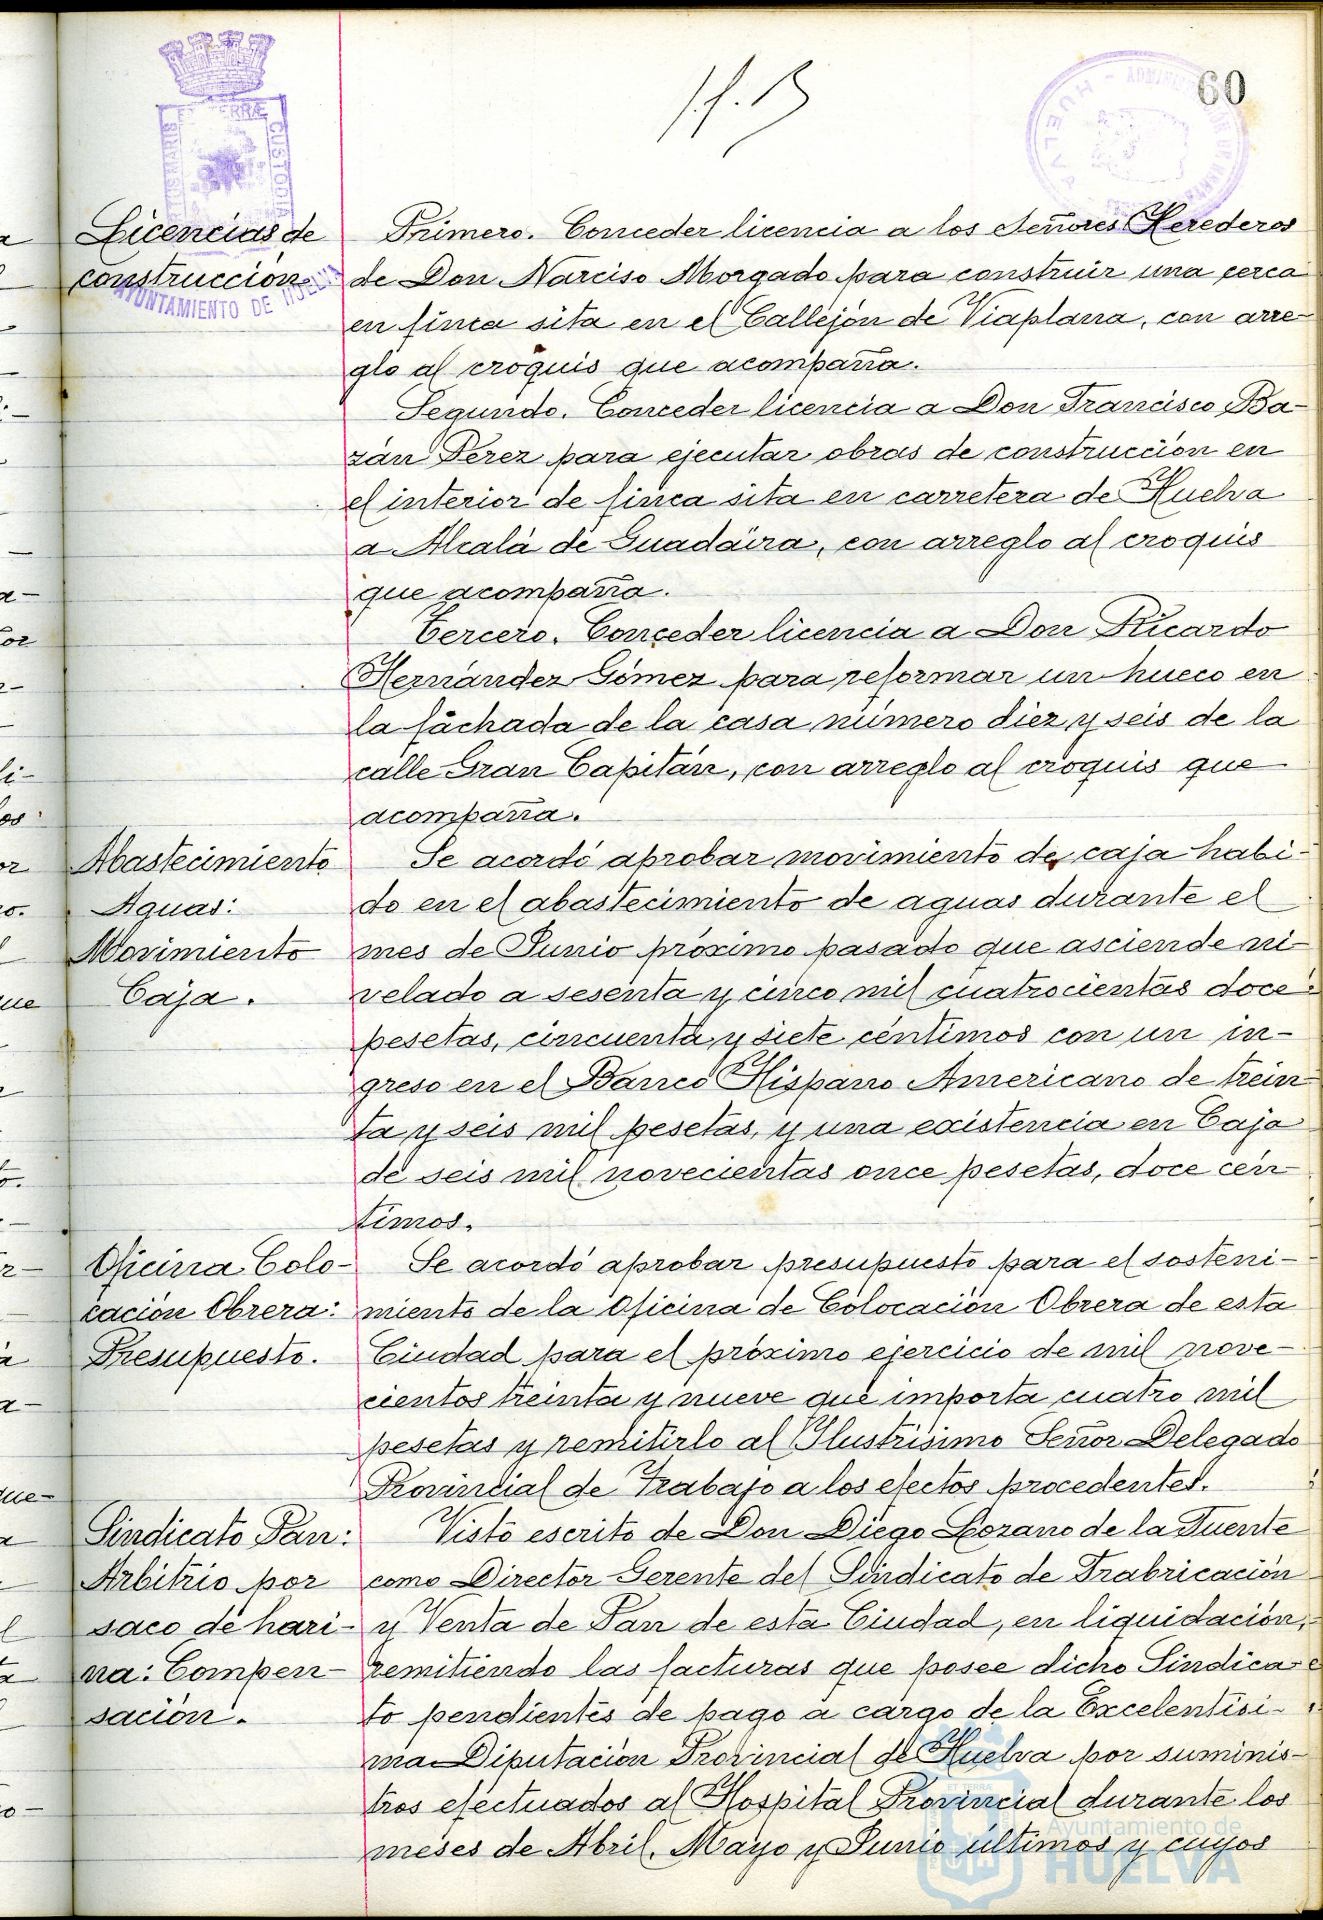 60
PORTUS MARIS ET TERRÆ CUSTODIA
AYUNTAMIENTO DE HUELVA
HUELVA - ADMINISTRACIÓN DE
Licencias de
construcción
Primero. Conceder licencia a los Señores Herederos
de Don Narciso Morgado para construir una cerca
en finca sita en el Callejón de Viaplana, con arre-
glo al croquis que acompaña.
Segundo. Conceder licencia a Don Francisco Ba-
zán Perez para ejecutar obras de construcción en
el interior de finca sita en carretera de Huelva
a Alcalá de Guadaíra, con arreglo al croquis
que acompaña.
Tercero. Conceder licencia a Don Ricardo
Hernández Gómez para reformar un hueco en
la fachada de la casa número diez y seis de la
calle Gran Capitán, con arreglo al croquis que
acompaña.
Abastecimiento
Aguas:
Movimiento
Caja.
Se acordó aprobar movimiento de caja habi-
do en el abastecimiento de aguas durante el
mes de Junio próximo pasado que asciende ni-
velado a sesenta y cinco mil cuatrocientas doce
pesetas, cincuenta y siete céntimos con un in-
greso en el Banco Hispano Americano de trein-
ta y seis mil pesetas, y una existencia en Caja
de seis mil novecientas once pesetas, doce cén-
timos.
Oficina Colo-
cación Obrera:
Presupuesto.
Se acordó aprobar presupuesto para el sosteni-
miento de la Oficina de Colocación Obrera de esta
Ciudad para el próximo ejercicio de mil nove-
cientos treinta y nueve que importa cuatro mil
pesetas y remitirlo al Ilustrísimo Señor Delegado
Provincial de Trabajo a los efectos procedentes.
Sindicato Pan:
Arbitrio por
saco de hari-
na: Compen-
sación.
Visto escrito de Don Diego Lozano de la Fuente
como Director Gerente del Sindicato de Frabricación
y Venta de Pan de esta Ciudad, en liquidación,
remitiendo las facturas que posee dicho Sindica-
to pendientes de pago a cargo de la Excelentísi-
ma Diputación Provincial de Huelva por suminis-
tros efectuados al Hospital Provincial durante los
meses de Abril, Mayo y Junio últimos y cuyos
Ayuntamiento de
HUELVA